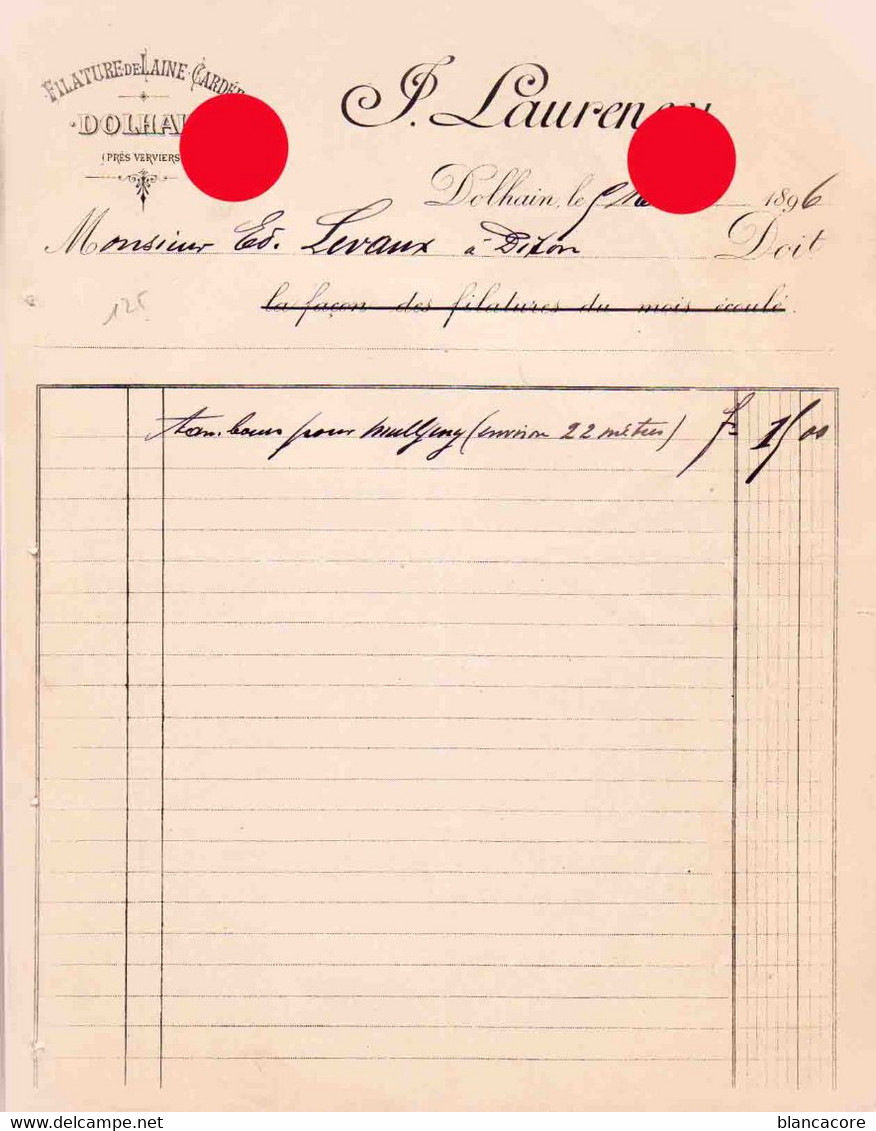 FILATURE DE LAINE CARDÉE
DOLHAI
(PRÈS VERVIERS
J. Laurency
Dolhain, le 5 1896
Monsieur Ed. Levaux à Dison Doit
la façon des filatures du mois écoulé.
125
tambour pour (environ 22 mètres) fs 15 00
delcampe.net
blancacore